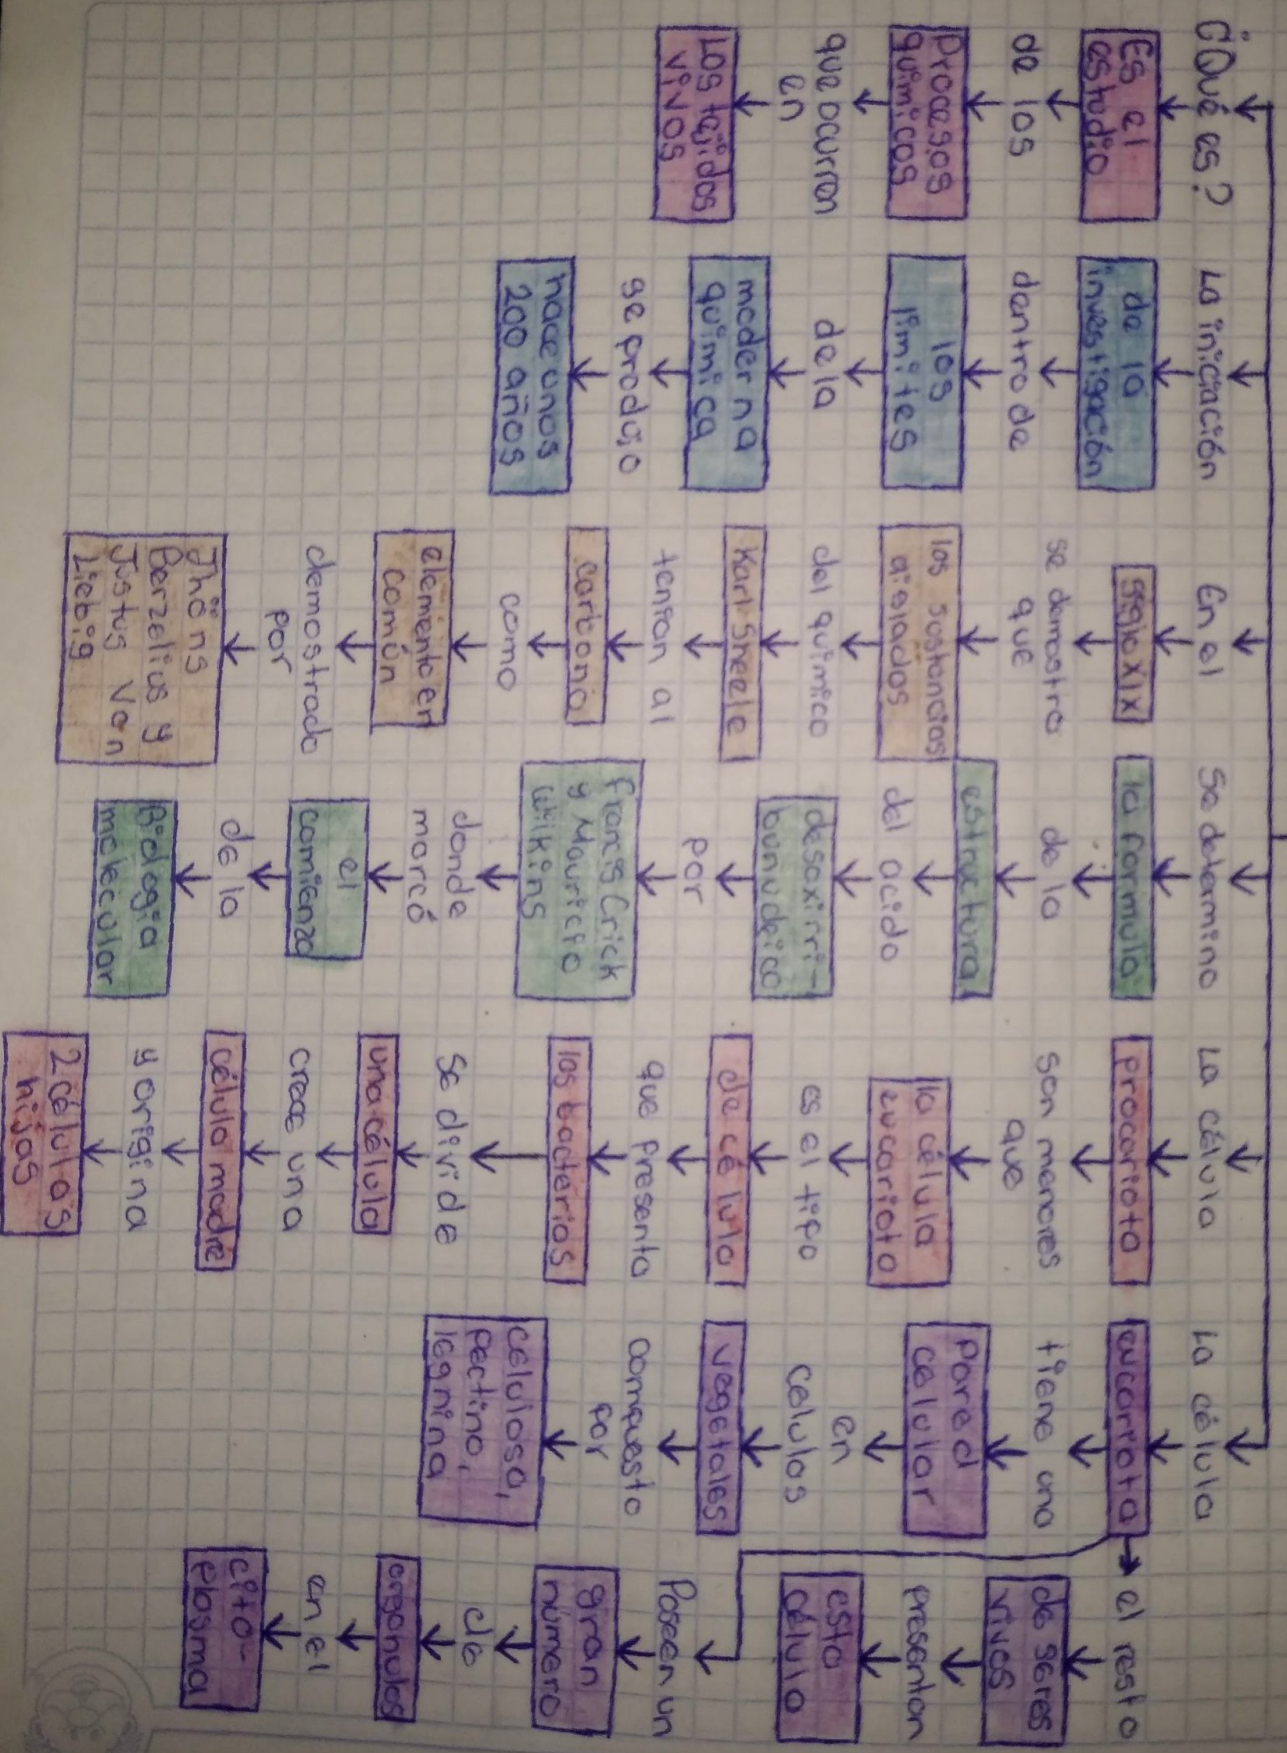 ¿Qué es?
Es el
estudio
de los
Procesos
químicos
que ocurren
en
Los tejidos
vivos
La iniciación
de la
investigación
dentro de
los
límites
de la
moderna
química
se produjo
hace unos
200 años
En el
siglo XIX
se demostró
que
las sustancias
aisladas
del químico
Karl Sheele
tenían al
carbono
como
elemento en
común
demostrado
por
Jhöns
Berzelius y
Justus Von
Liebig
Se determino
la formula
de la
estructura
del acido
desoxirri-
bonucleico
por
Francis Crick
y Mauricio
Wilkins
donde
marcó
el
comienzo
de la
Biología
molecular
La célula
procariota
son menores
que
la célula
eucariota
es el tipo
de célula
que presenta
las bacterias
Se divide
una célula
crece una
célula madre
y origina
2 células
hijas
La célula
eucariota
tiene una
Pared
celular
en
celulas
vegetales
compuesta
por
celulosa,
pectina,
legnina
el resto
de seres
vivos
presentan
esta
célula
Poseen un
gran
número
de
organulos
en el
cito-
plasma